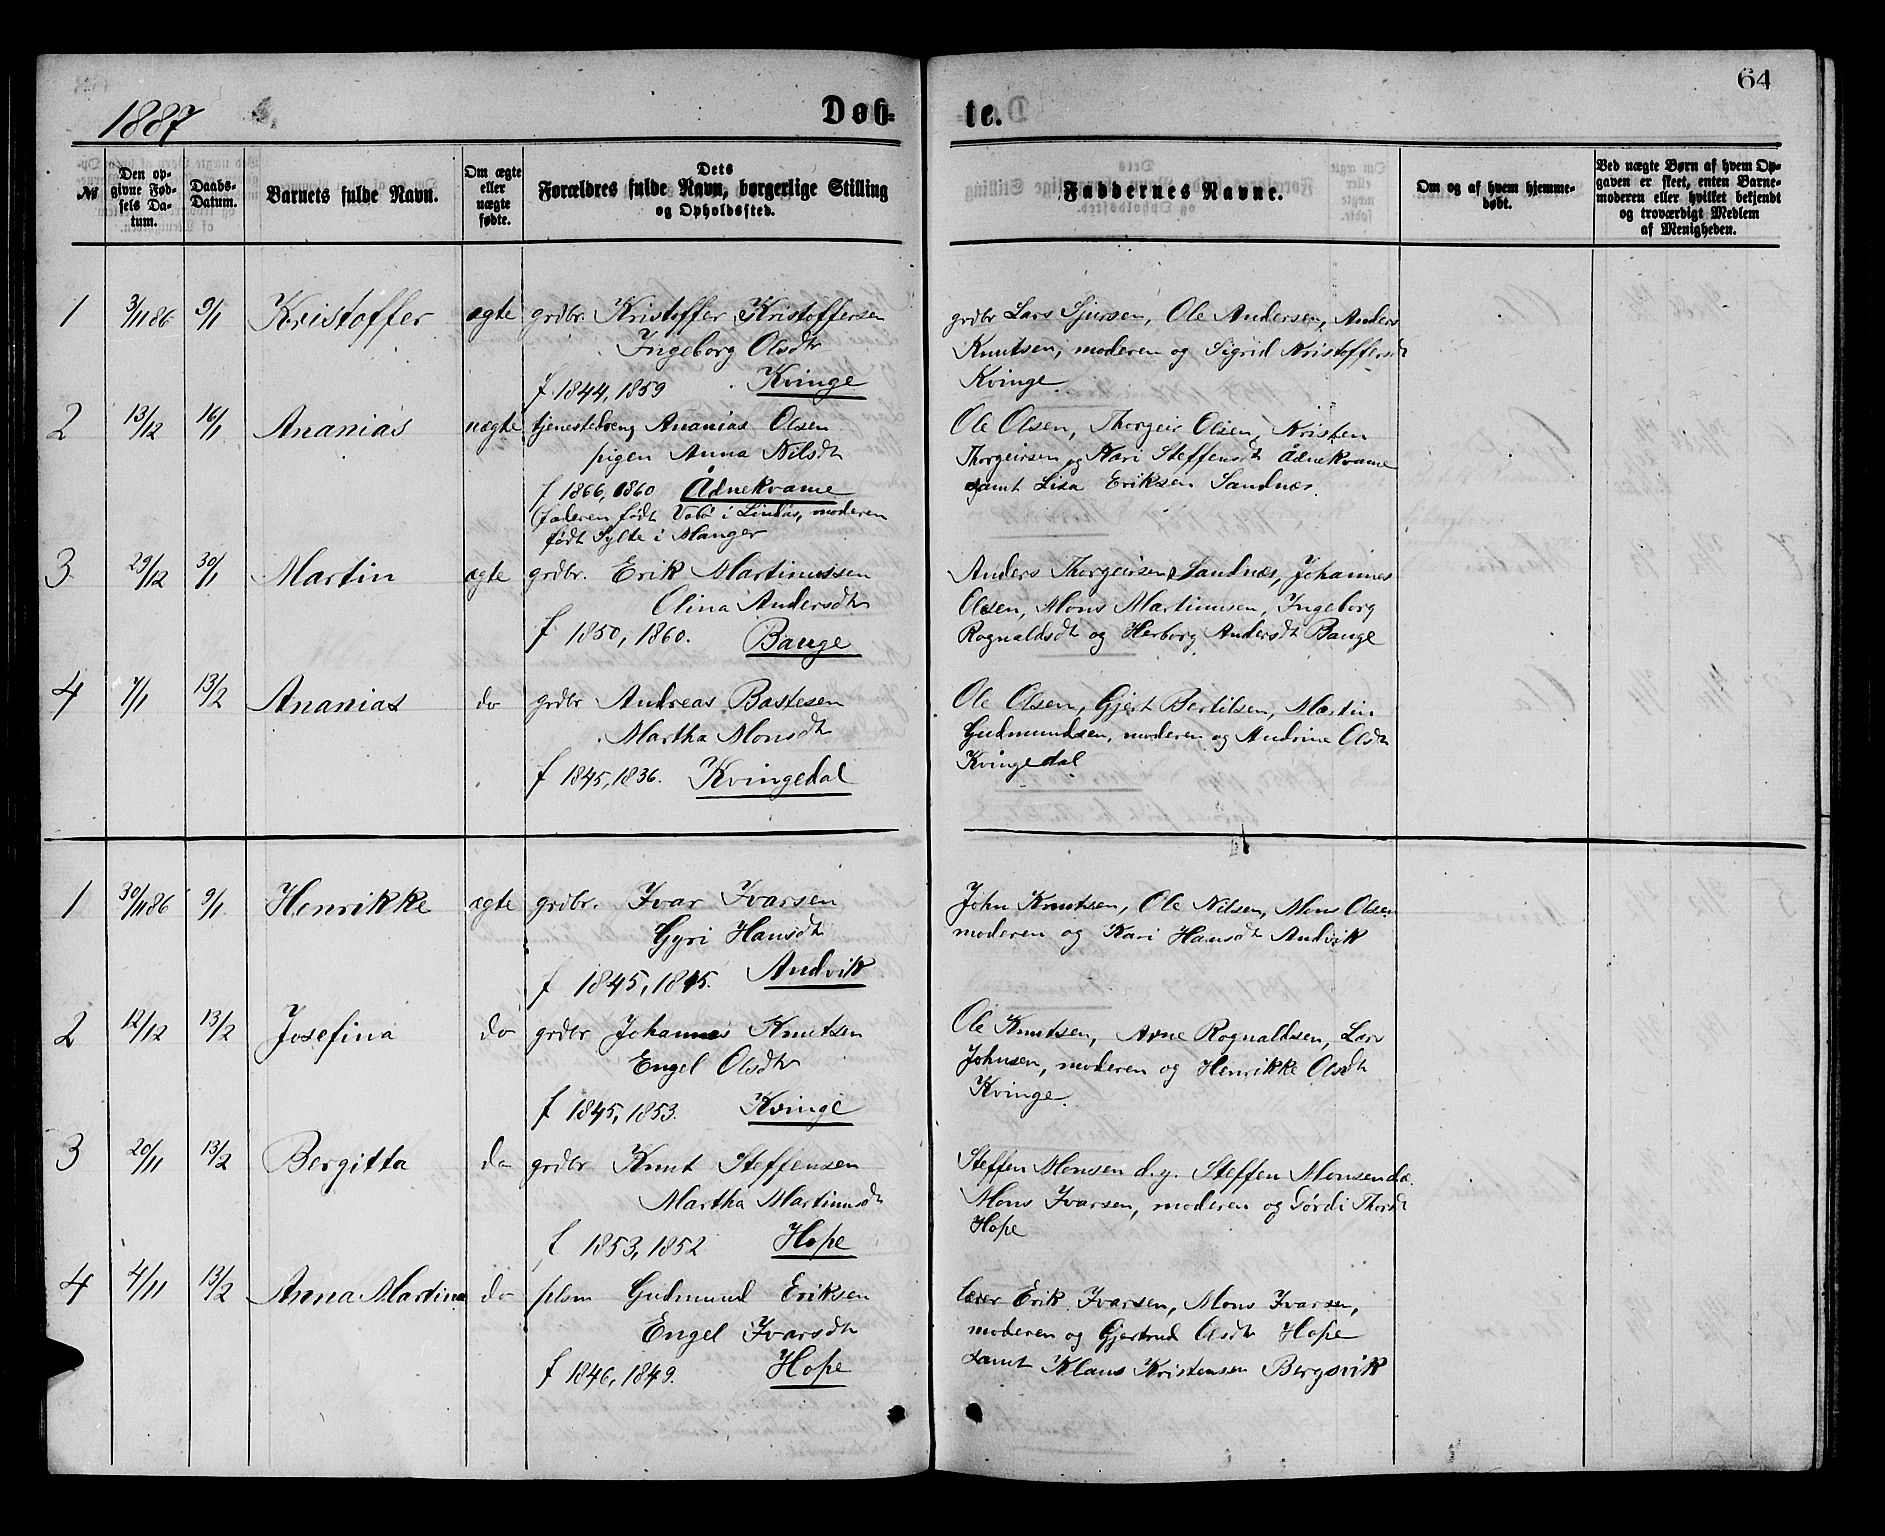 64
1887
Døb=te.
№
Den opgivne Fødsels Datum.
Daabs-Datum.
Barnets fulde Navn.
Om ægte eller uægte fødte.
Dets Forældres fulde Navn, borgerlige Stilling og Opholdssted.
Faddernes Navne.
Om og af hvem hjemmedøbt.
Ved uægte Børn af hvem Opgaven er skeet, enten Barnemoderen eller hvilket bekjendt og troværdigt Medlem af Menigheden.
1 3/11 86 9/1 Kristoffer ægte grdbr. Kristoffer Kristoffersen
Ingeborg Olsdtr
f 1844, 1859 Kvinge
grdbr Lars Sjursen, Ole Andersen, Anders
Knutsen, moderen og Sigrid Kristoffersdt
Kvinge
2 13/12 16/1 Ananias uægte tjenestedreng Ananias Olsen
pigen Anna Nilsdt
f 1866, 1860 Ådnekvame
faderen født i Lindås, moderen
født Sylte i Manger
Ole Olsen, Thorgeir Olsen, Kristen
Thorgeirsen og Kari Steffensdt Ådnekvame
samt Lisa Eriksen Sandnæs.
3 29/12 30/1 Martin ægte grdbr. Erik Martinussen
Olina Andersdtr
f 1850, 1860. Bauge
Anders Thorgeirsen Sandnæs, Johannes
Olsen, Mons Martinusen, Ingeborg
Rognaldsdt og Herborg Andersdt Bauge
4 7/1 13/2 Ananias do grdbr Andreas Bastesen
Martha Monsdt
f 1845, 1836. Kvingedal
Ole Olsen, Gjert Bertilsen, Martin
Gudmundsen, moderen og Andrine Olsdt
Kvingedal
1 30/11 86 9/1 Henrikke ægte grdbr. Ivar Ivarsen
Gyri Hansdt
f 1845, 1845. Andvik
John Knutsen, Ole Nilsen, Mons Olsen
moderen og Kari Hansdt Andvik
2 12/12 13/2 Josefina do grdbr Johannes Knutsen
Engel Olsdtr
f 1845, 1853. Kvinge
Ole Knutsen, Arne Rognaldsen, Lars
Johnsen, moderen og Henrikke Olsdt
Kvinge.
3 20/11 13/2 Bergitta do grdbr Knut Steffensen
Martha Martinusdt
f 1853, 1852 Hope
Steffen Monsen d.y. Steffen Monsen d.æ.
Mons Ivarsen, moderen og Gørdi Thorsdt
Hope
4 4/11 13/2 Anna Martina do plsm Gudmund Eriksen
Engel Ivarsdtr
f 1846, 1849. Hope
lærer Erik Ivarsen, Mons Ivarsen,
moderen og Gjertrud Olsdtr Hope
samt Klaus Kristensen Bergsvik